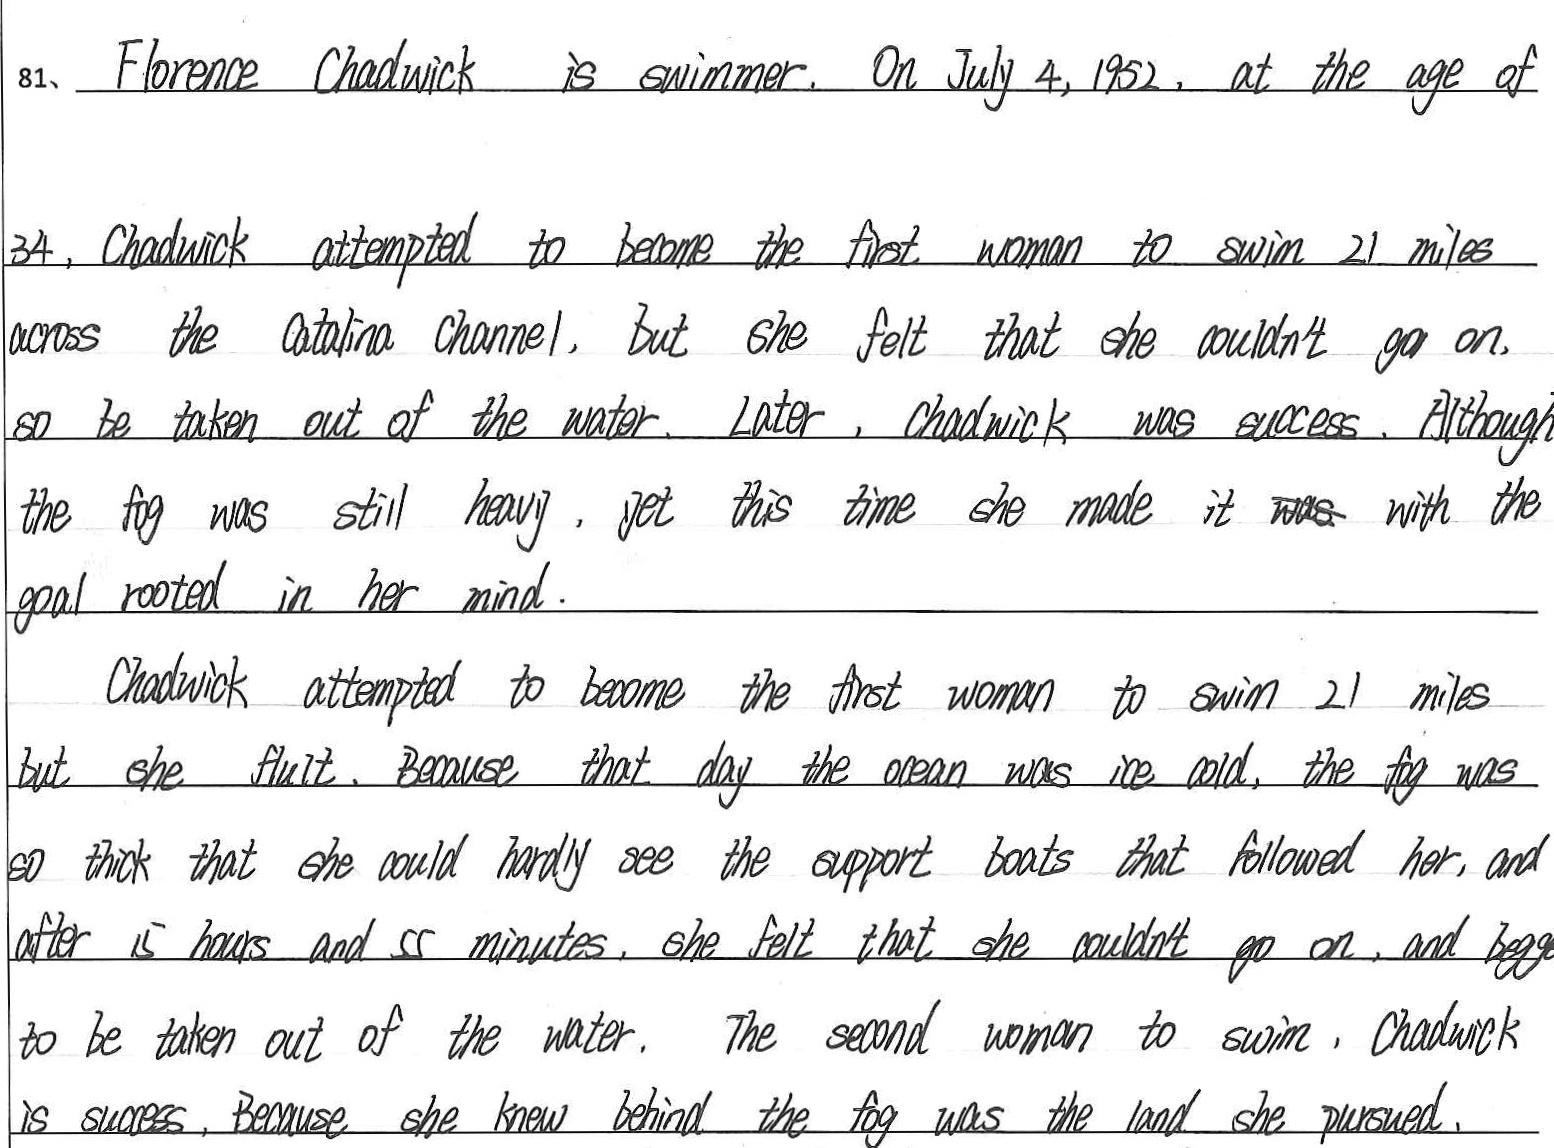 81、 Florence Chadwick is swimmer. On July 4, 1952, at the age of
34, Chadwick attempted to become the first woman to swim 21 miles
across the Catalina Channel, but she felt that she couldn't go on,
so be taken out of the water. Later, Chadwick was success. Although
the fog was still heavy, yet this time she made it was with the
goal rooted in her mind.
Chadwick attempted to become the first woman to swim 21 miles
but she . Because that day the ocean was ice cold, the fog was
so thick that she could hardly see the support boats that followed her, and
after 15 hours and 55 minutes, she felt that she couldn't go on, and begge
to be taken out of the water. The second woman to swim, Chadwick
is success. Because she knew behind the fog was the land she pursued.